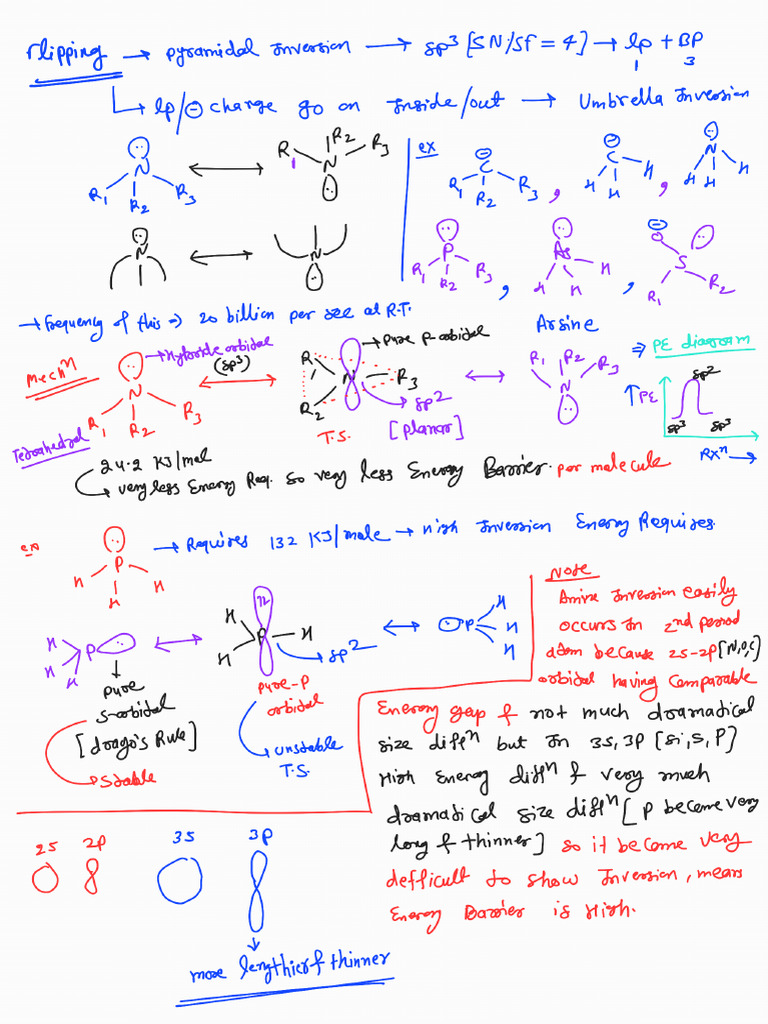 Flipping → pyramidal Inversion → sp3 [SN/SF = 4] → lp + BP
1 3
↳ lp/⊖ charge go on Inside/out → Umbrella Inversion
N R1 R2 R3 ↔ R1 R2 R3 N
ex
R1 C⊖ R2 R3 , H C⊖ H H , H N H H
N ↔ N
R1 P R2 R3 , H As H H , O⊖ S R1 R2
Arsine
→ Frequency of this ⇒ 20 billion per sec at R.T.
Mechn
Hybride orbital
(sp3)
N R1 R2 R3
Tetrahedral
Pure p-orbital
R1 N R3 R2
T.S.
sp2
[planar]
R1 R2 R3 N
⇒ PE diagram
↑PE
sp2
sp3 sp3
Rxn →
24.2 KJ/mol
↳ very less Energy Req. so very less Energy Barrier. per molecule
ex
P H H H → Requires 132 KJ/mole → High Inversion Energy Requires.
H H H P
↓
pure
s-orbital
[drago's Rule]
stable
H H P H
sp2
pure-p
orbital
unstable
T.S.
P H H H
Note
Amine Inversion easily
occurs in 2nd period
atom because 2s-2p [N,O,C]
orbital having comparable
Energy gap & not much dramatical
size diffn but In 3s,3p [Si,S,P]
High Energy diffn & very much
dramatical size diffn [P become very
long & thinner] so it become very
defficult to show Inversion, means
Energy Barrier is High.
2s 2p 3s 3p
↓
more lengthier & thinner